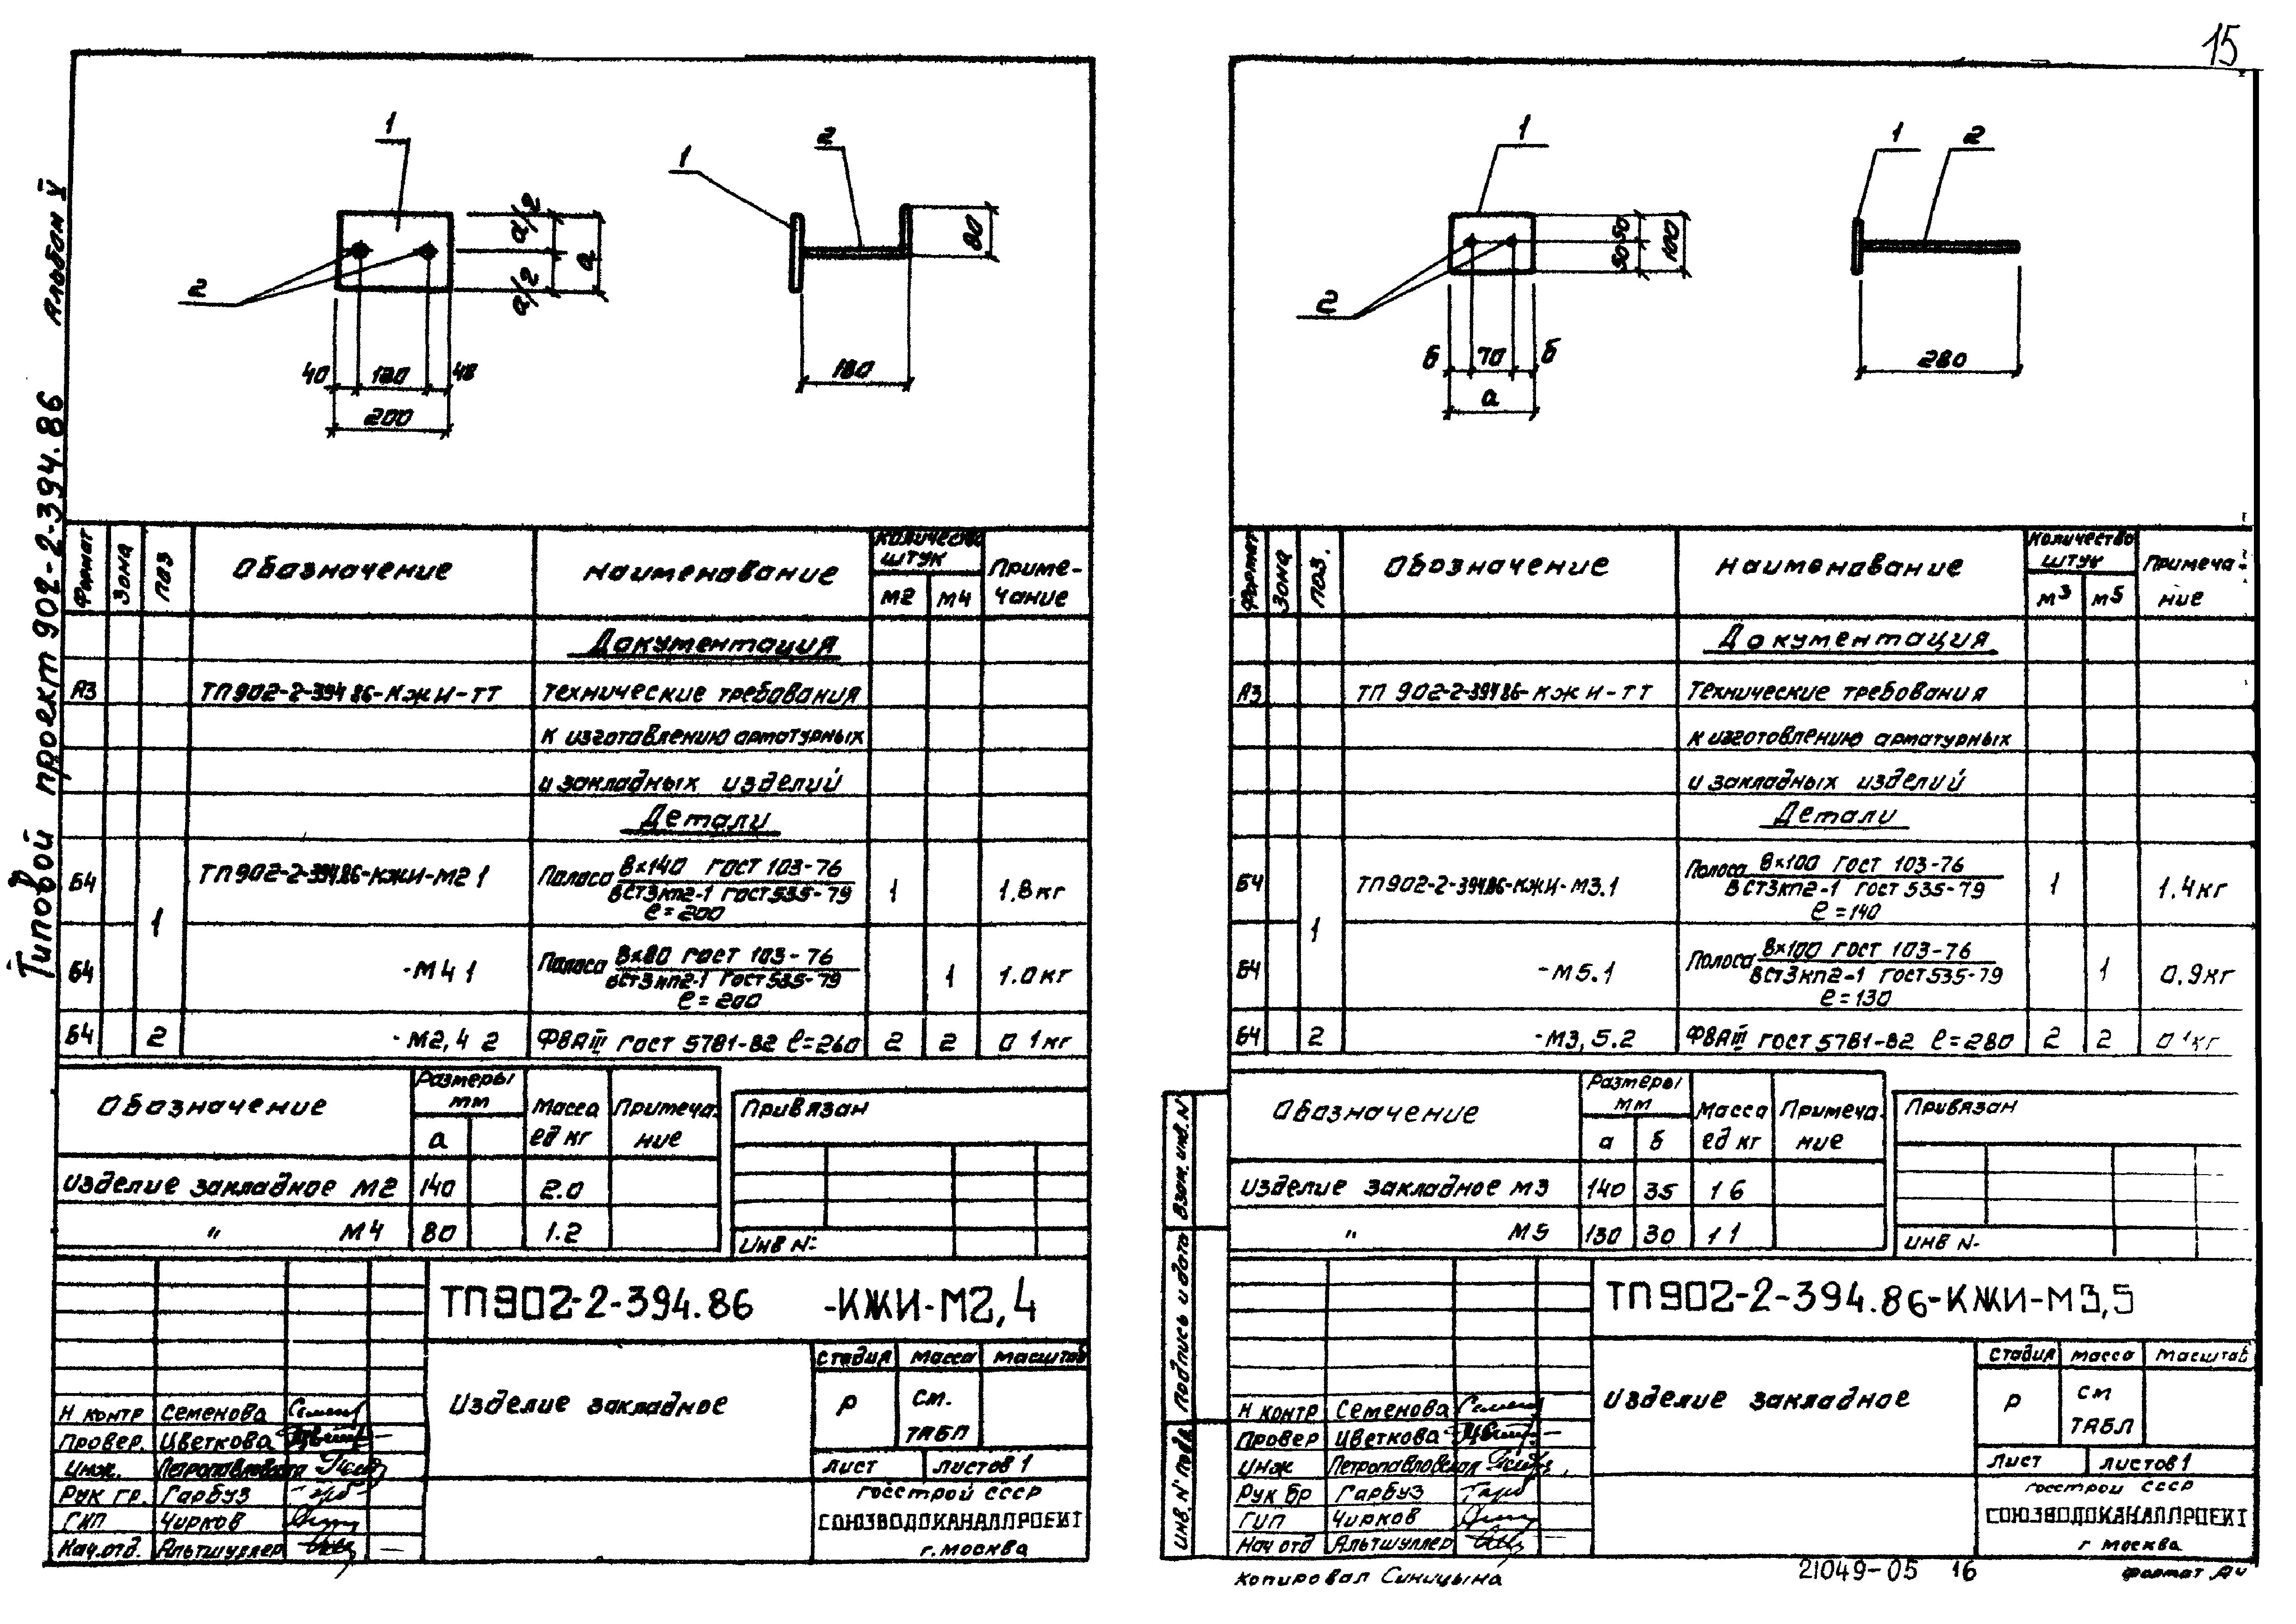 15
Типовой проект 902-2-394.86 Альбом V
1
2
40 120 40
200
а/2
а/2
а
1
2
80
180
Формат
Зона
Поз
Обозначение
Наименование
Количество
штук
М2 М4
Приме-
чание
Документация
А3 ТП902-2-394.86-КЖИ-ТТ Технические требования
к изготовлению арматурных
и закладных изделий
Детали
Б4 1 ТП902-2-394.86-КЖИ-М2 1 Полоса 8х140 ГОСТ 103-76 1 1.8кг
ВСт3кп2-1 ГОСТ 535-79
ℓ=200
Б4 -М4 1 Полоса 8х80 ГОСТ 103-76 1 1.0кг
ВСт3кп2-1 ГОСТ 535-79
ℓ=200
Б4 2 -М2,4 2 Ф8АIII ГОСТ 5781-82 ℓ=260 2 2 0 1кг
Обозначение
Размеры
мм
а
Масса
ед кг
Примеча-
ние
Изделие закладное М2 140 2.0
" М4 80 1.2
Привязан
Инв N:
ТП902-2-394.86 -КЖИ-М2,4
Изделие закладное
Стадия Масса Масштаб
Р см.
табл
Лист Листов 1
Госстрой СССР
СОЮЗВОДОКАНАЛПРОЕКТ
г. Москва
Н контр Семенова
Провер. Цветкова
Инж. Петропавловская
Рук гр. Гарбуз
ГИП Чирков
Нач.отд. Альтшуллер
1
2
б 70 б
а
50
50
100
1
2
280
Формат
Зона
Поз.
Обозначение
Наименование
Количество
штук
М3 М5
Примеча-
ние
Документация
А3 ТП 902-2-394.86-КЖИ-ТТ Технические требования
к изготовлению арматурных
и закладных изделий
Детали
Б4 1 ТП902-2-394.86-КЖИ-М3.1 Полоса 8х100 ГОСТ 103-76 1 1.4кг
ВСт3кп2-1 ГОСТ 535-79
ℓ=140
Б4 -М5.1 Полоса 8х100 ГОСТ 103-76 1 0.9кг
ВСт3кп2-1 ГОСТ 535-79
ℓ=130
Б4 2 -М3,5.2 Ф8АIII ГОСТ 5781-82 ℓ=280 2 2 0 1кг
Обозначение
Размеры
мм
а б
Масса
ед кг
Примеча-
ние
Изделие закладное М3 140 35 1 6
" М5 130 30 1 1
Привязан
Инв N.
Взам. инв. N
Подпись и дата
Инв. N подл.
ТП902-2-394.86-КЖИ-М3,5
Изделие закладное
Стадия Масса Масштаб
Р см
табл
Лист Листов 1
Госстрой СССР
СОЮЗВОДОКАНАЛПРОЕКТ
г Москва
Н контр Семенова
Провер Цветкова
Инж Петропавловская
Рук бр Гарбуз
ГИП Чирков
Нач отд Альтшуллер
Копировал Синицына
21049-05 16
Формат А4